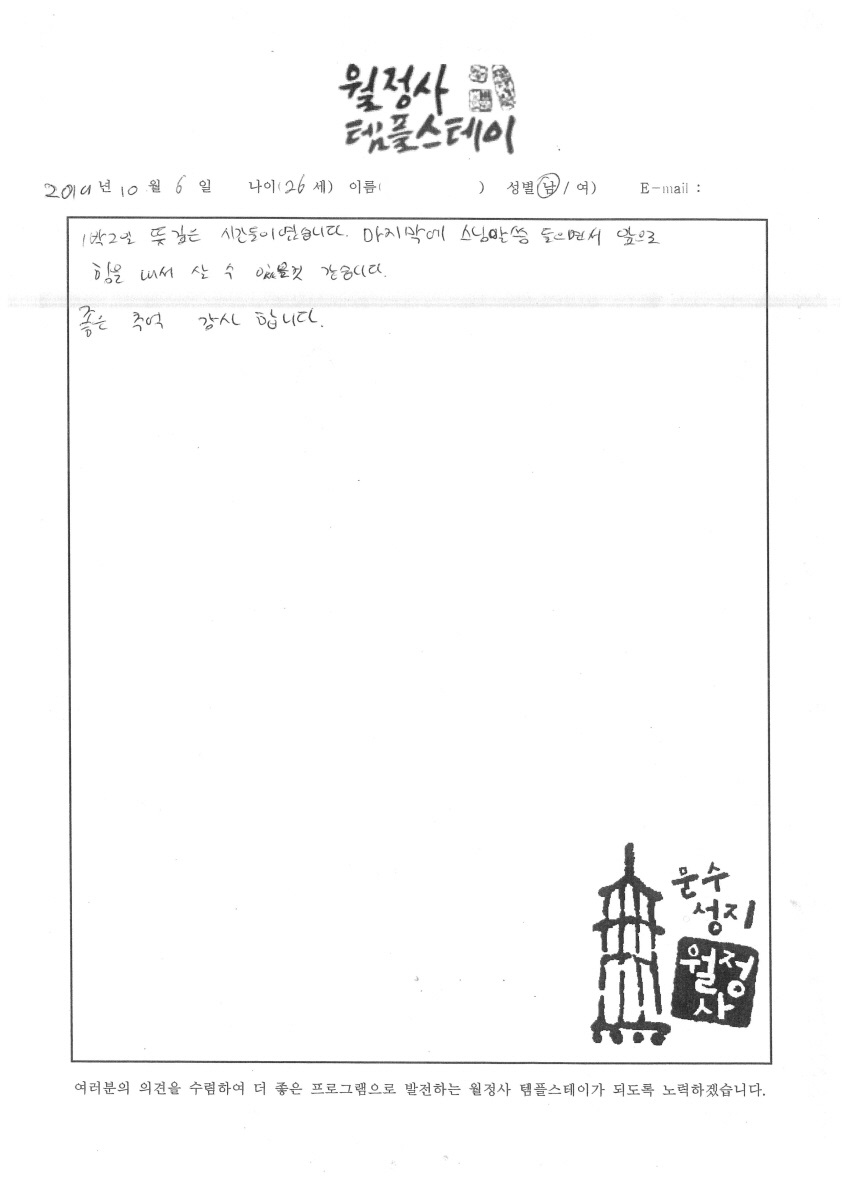 월정사
템플스테이
2019년 10월 6일 나이(26세) 이름( ) 성별(남/여) E-mail :
1박2일 뜻깊은 시간들이였습니다. 마지막에 스님말씀 들으면서 앞으로
힘을 내서 살 수 있을것 같습니다.
좋은 추억 감사 합니다.
문수
성지
월정
사
여러분의 의견을 수렴하여 더 좋은 프로그램으로 발전하는 월정사 템플스테이가 되도록 노력하겠습니다.